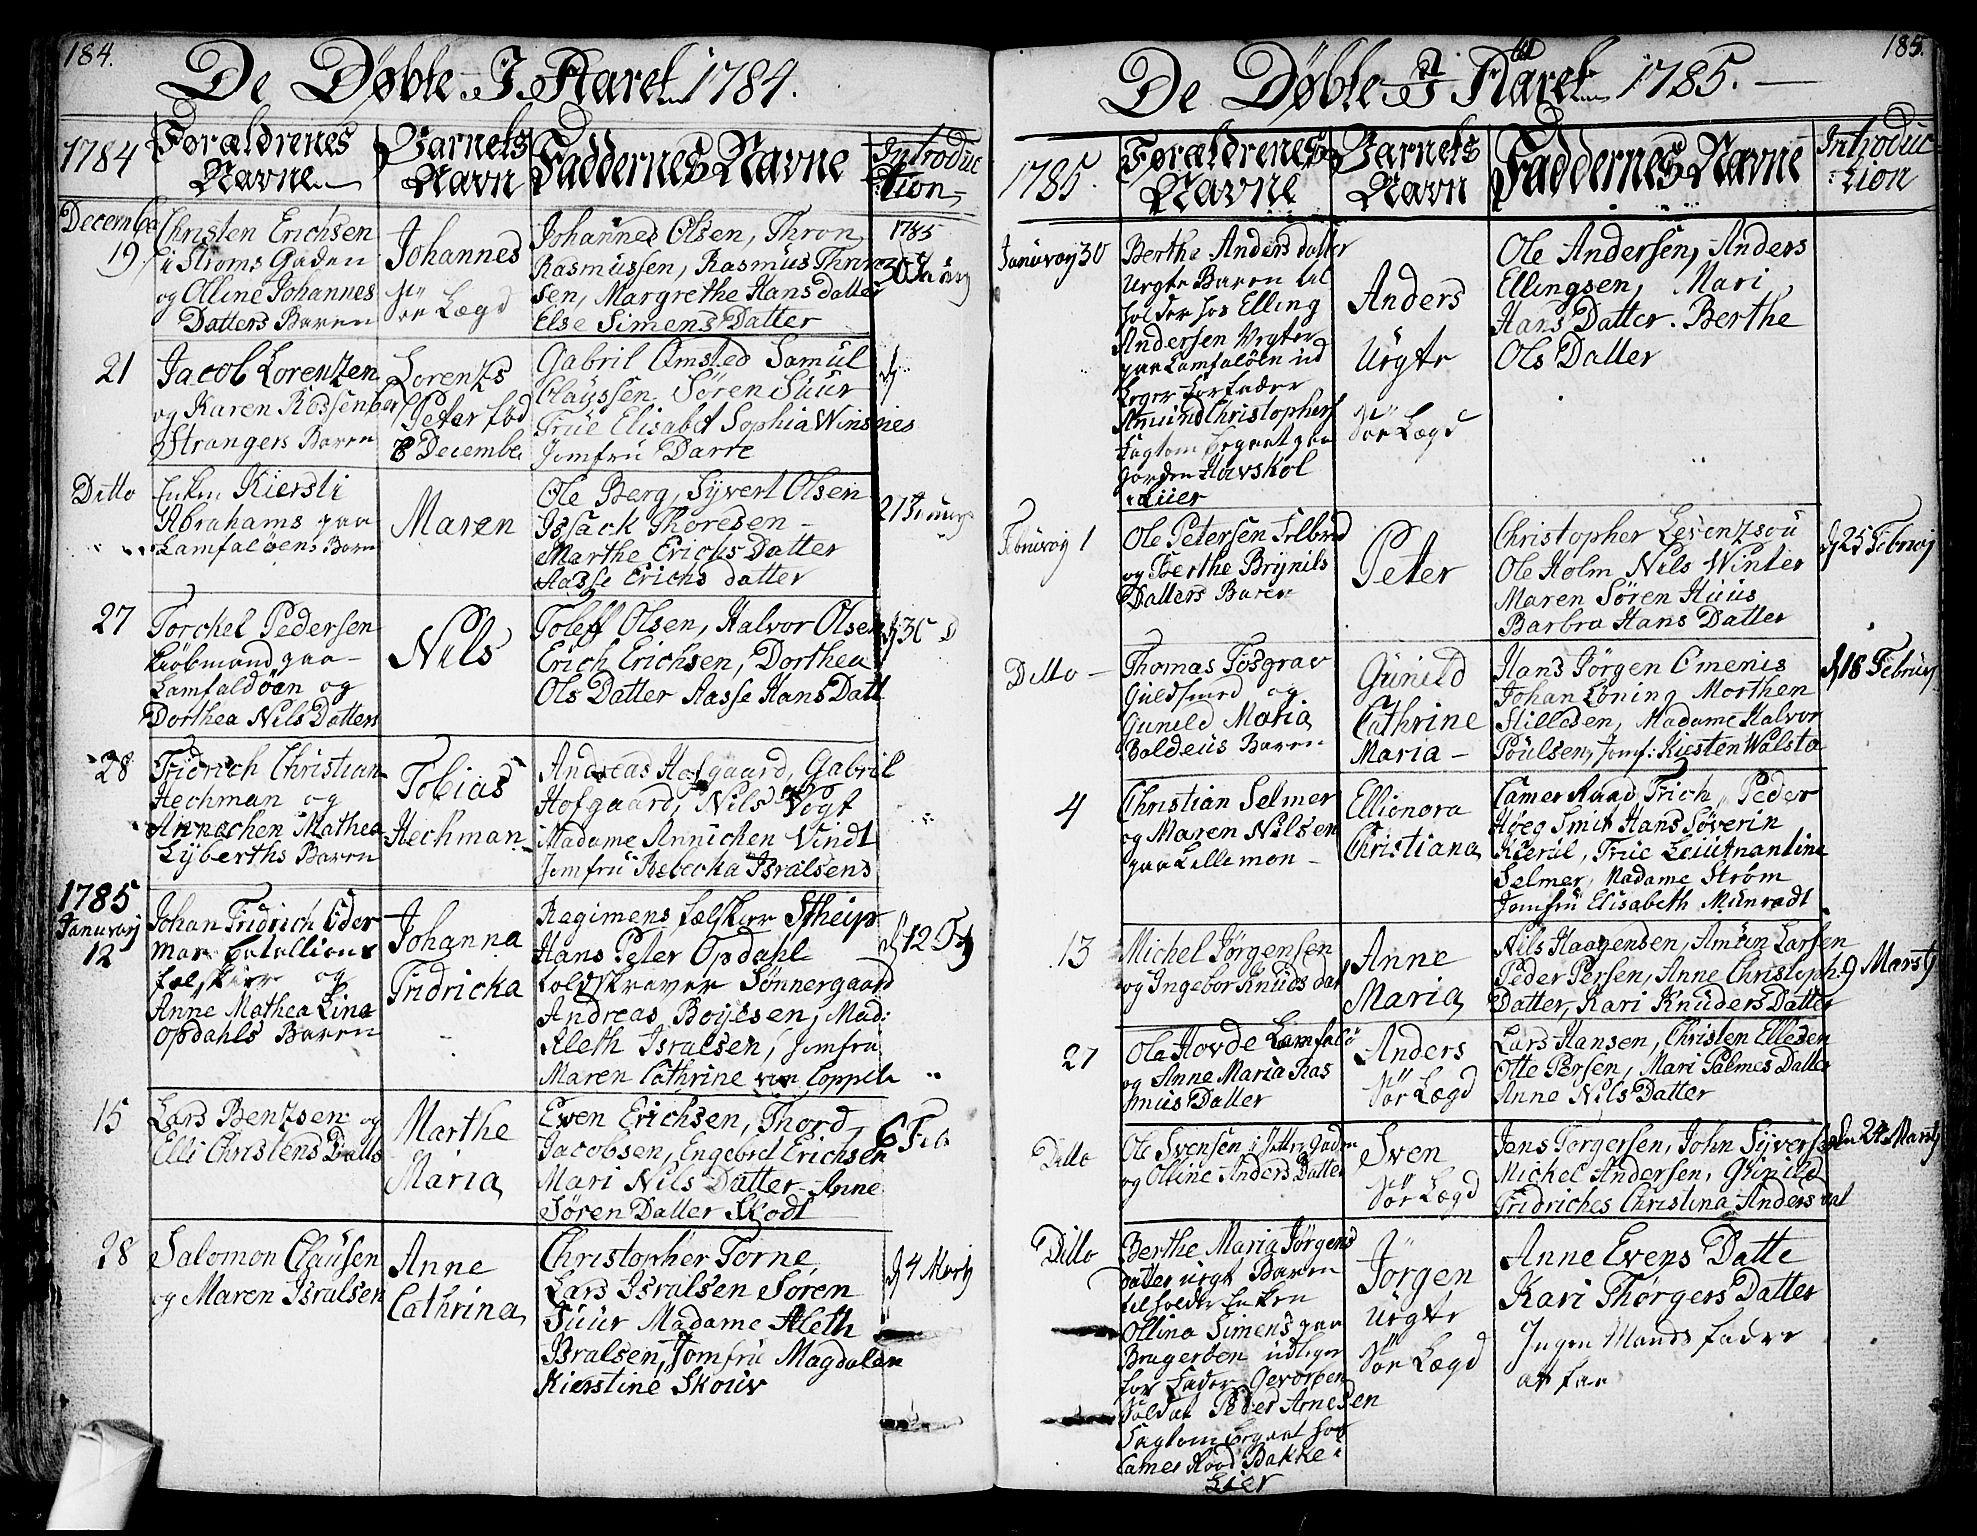 184.
De Døbte I Aaret 1784.
1784
Forældrenes
Navne
Barnets
Navn
Faddernes Navne
Introduc
tion
December
19
Christen Erichsen
i Stroms Gaden
og Olline Johannes
Datters Baren
Johannes
Sör Lægd
Johannes Olsen, Thron
Rasmussen, Rasmus Thron
sen, Margrethe Hans datter
Else Simens Datter
1785
30 Januarÿ
21
Jacob Lorentzen
og Karen
Strangers Baren
Lorents
Peter fød
8 December
Gabril Omsted Samul
Clayssen, Sören Suur
Frue Elisabet Sophia Winsnes
Jomfru Darre
Ditto
Enken Kiersti
Abrahams paa
Lamfaløens Barn
Maren
Ole Berg, Syvert Olsen
Issack Thoresen
Marthe Erichs Datter
Aasse Erichs datter
21 Januarÿ
27
Torckel Pedersen
Kiöbmand paa
Lamfaldöen og
Dorthea Nils Datters
Nils
Toleff Olsen, Halvor Olsen
Erich Erichsen, Dorthea
Ols Datter Aasse Hans Datt
30
28
Fridrich Christian
Hechman og
Annechen Mathea
Lyberths Baren
Tobias
Hechman
Andreas Hofgaard, Gabril
Hofgaard, Nils Vogt
Madame Annichen Vindt
Jomfru Rebecka Isralsens
1785
Januarÿ
12
Johan Fridrich Eder
man Batallions
felskier og
Anne Mathea Lina
Opdahls Baren
Johanna
Fridricka
Regimens felskier
Hans Peter Opdahl
toldskriver Sönnergaard
Andreas Boÿesen, Mad:
Aleth Isralsen, Jomfru
Maren Cathrine von Coppeln
12
15
Lars Bentzsen og
Elli Christens Datts
Marthe
Maria
Even Erichsen, Thord
Jacobsen, Engebret Erichsen
Mari Nils Datter Anne
Sören Datter Skodt
6 Feb
28
Salomon Clausen
og Maren Isralsen
Anne
Cathrina
Christopher Torne,
Lars Isralsen Sören
Suur Madame Aleth
Isralsen, Jomfru Magdalen
Kierstine Skouv
4 Martÿ
185.
De Døbte I Aaret 1785.
1785.
Forældrenes
Navne
Barnets
Navn
Faddernes Navne
Introduc
tion
Januarÿ 30
Berthe Anders datter
Uegte Baren til
holder hos Elling
Andersen Vegter
paa Lamfaløen ud
leger for fader
Amund Christophers
Sagtom begaaet paa
gorden Havskol
i Liier
Anders
Uegte
Sör Lægd
Ole Andersen, Anders
Ellingsen, Mari
Hans Datter. Berthe
Ols Datter
Februarÿ 1
Ole Petersen
og Berthe Brynils
Datters Baren
Peter
Christopher
Ole Holm Nils Winter
Maren Sören Huus
Barbro Hans Datter
25 Februarÿ
Ditto
Thomas Fosgrav
Guldsmed og
Gunild Maria
Boldeus Baren
Gunild
Cathrine
Maria
Hans Jörgen Omenis
Johan Löning Morthen
Stillesen, Madame Halvor
Poulsen, Jomf: Kiesten Walstø
18 Februarÿ
4
Christian Selmer
og Maren Nilsen
paa Lillemon
Ellionora
Christiana
Camer Raad Frich, Peder
Høeg Smit Hans Söverin
Kierul, Frue Leiutnantine
Selmer, Madame Strøm
Jomfru Elisabeth Munradt
13
Michel Jörgensen
og Ingebor Knuds dat
Anne
Maria
Nils Haagensen, Amun Larsen
Peder Persen, Anne Christoph:
Datter, Kari Knuders Datter
9 Martÿ
27
Ole Hovde Lamfalö
og Anne Maria Ras
mus Datter
Anders
Sör Lægd
Lars Hansen, Christen Ellesen
Otte Persen, Mari Palmes Datter
Anne Nils Datter
Ditto
Ole Svensen i Gaden
og Olline Anders Datter
Sven
Sör Lægd
Jens Torgersen, John Syversen
Michel Andersen, Gunild
Fridriches Christina Anders dat
24 Martÿ
Ditto
Berthe Maria Jörgens
datter uegt Baren
tilholder Enken
Ollina Simens paa
Bragerøen udleger
for Fader Gevorpen
Soldat Peder Arnesen
Sagtom begaaet hos
Camer Raad Bakke i
Lier
Jörgen
Uegte
Sör Lægd
Anne Evens Datte
Kari Thørgers Datter
Ingen Mands fadere
at faa